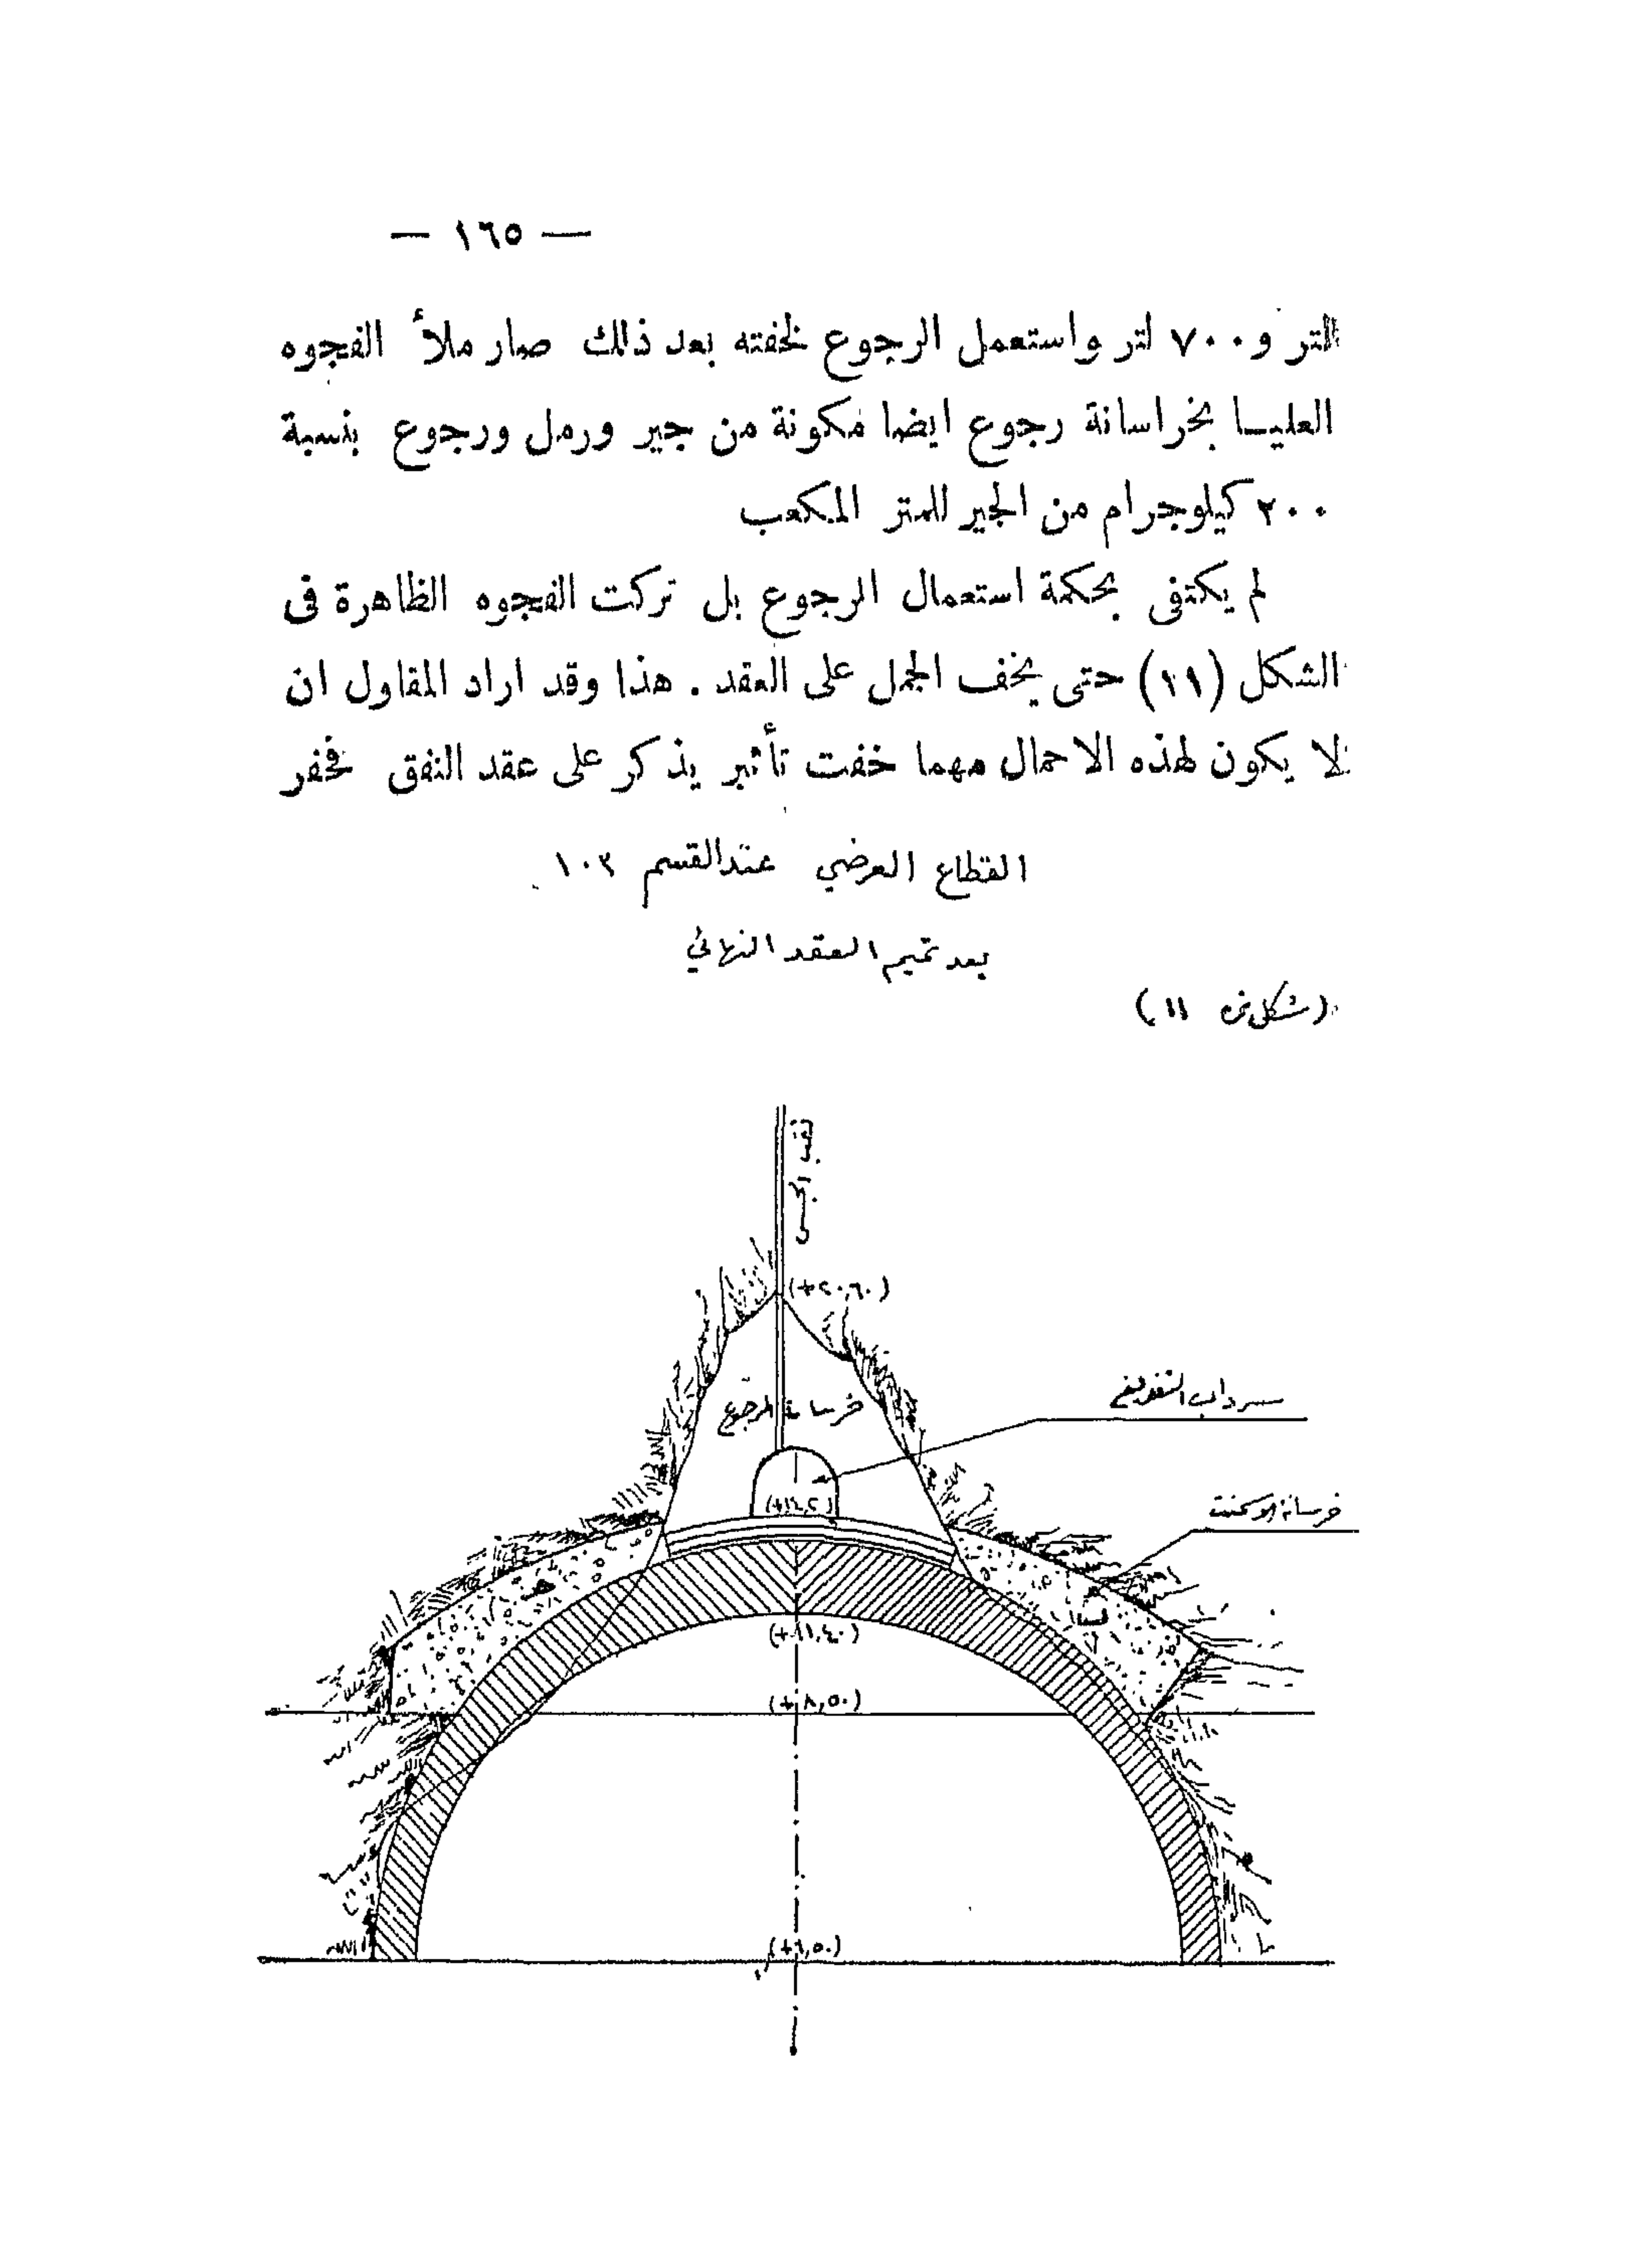 — ١٦٥ —
لتر و ٧٠٠ لتر واستعمل الرجوع لخفته بعد ذلك صار ملأ الفجوه
العليا بخراسانة رجوع ايضا مكونة من جير ورمل ورجوع بنسبة
٢٠٠ كيلوجرام من الجير للمتر المكعب
لم يكتفى بحكمة استعمال الرجوع بل تركت الفجوه الظاهرة فى
الشكل (١١) حتى يخف الحمل على العقد . هذا وقد اراد المقاول ان
لا يكون لهذه الاحمال مهما خفت تأثير يذكر على عقد النفق فحفر
القطاع العرضي عند القسم ١٠٣
بعد تتميم العقد النهائي
(شكل نمره ١١)
ثقب الجس
(+٢٠,٦٠)
سرداب التفريغ
خرسانة الرجوع
(+١٤,٢)
خرسانة الاسمنت
(+١١,٤٠)
(+٨,٥٠)
(+٦,٥٠)